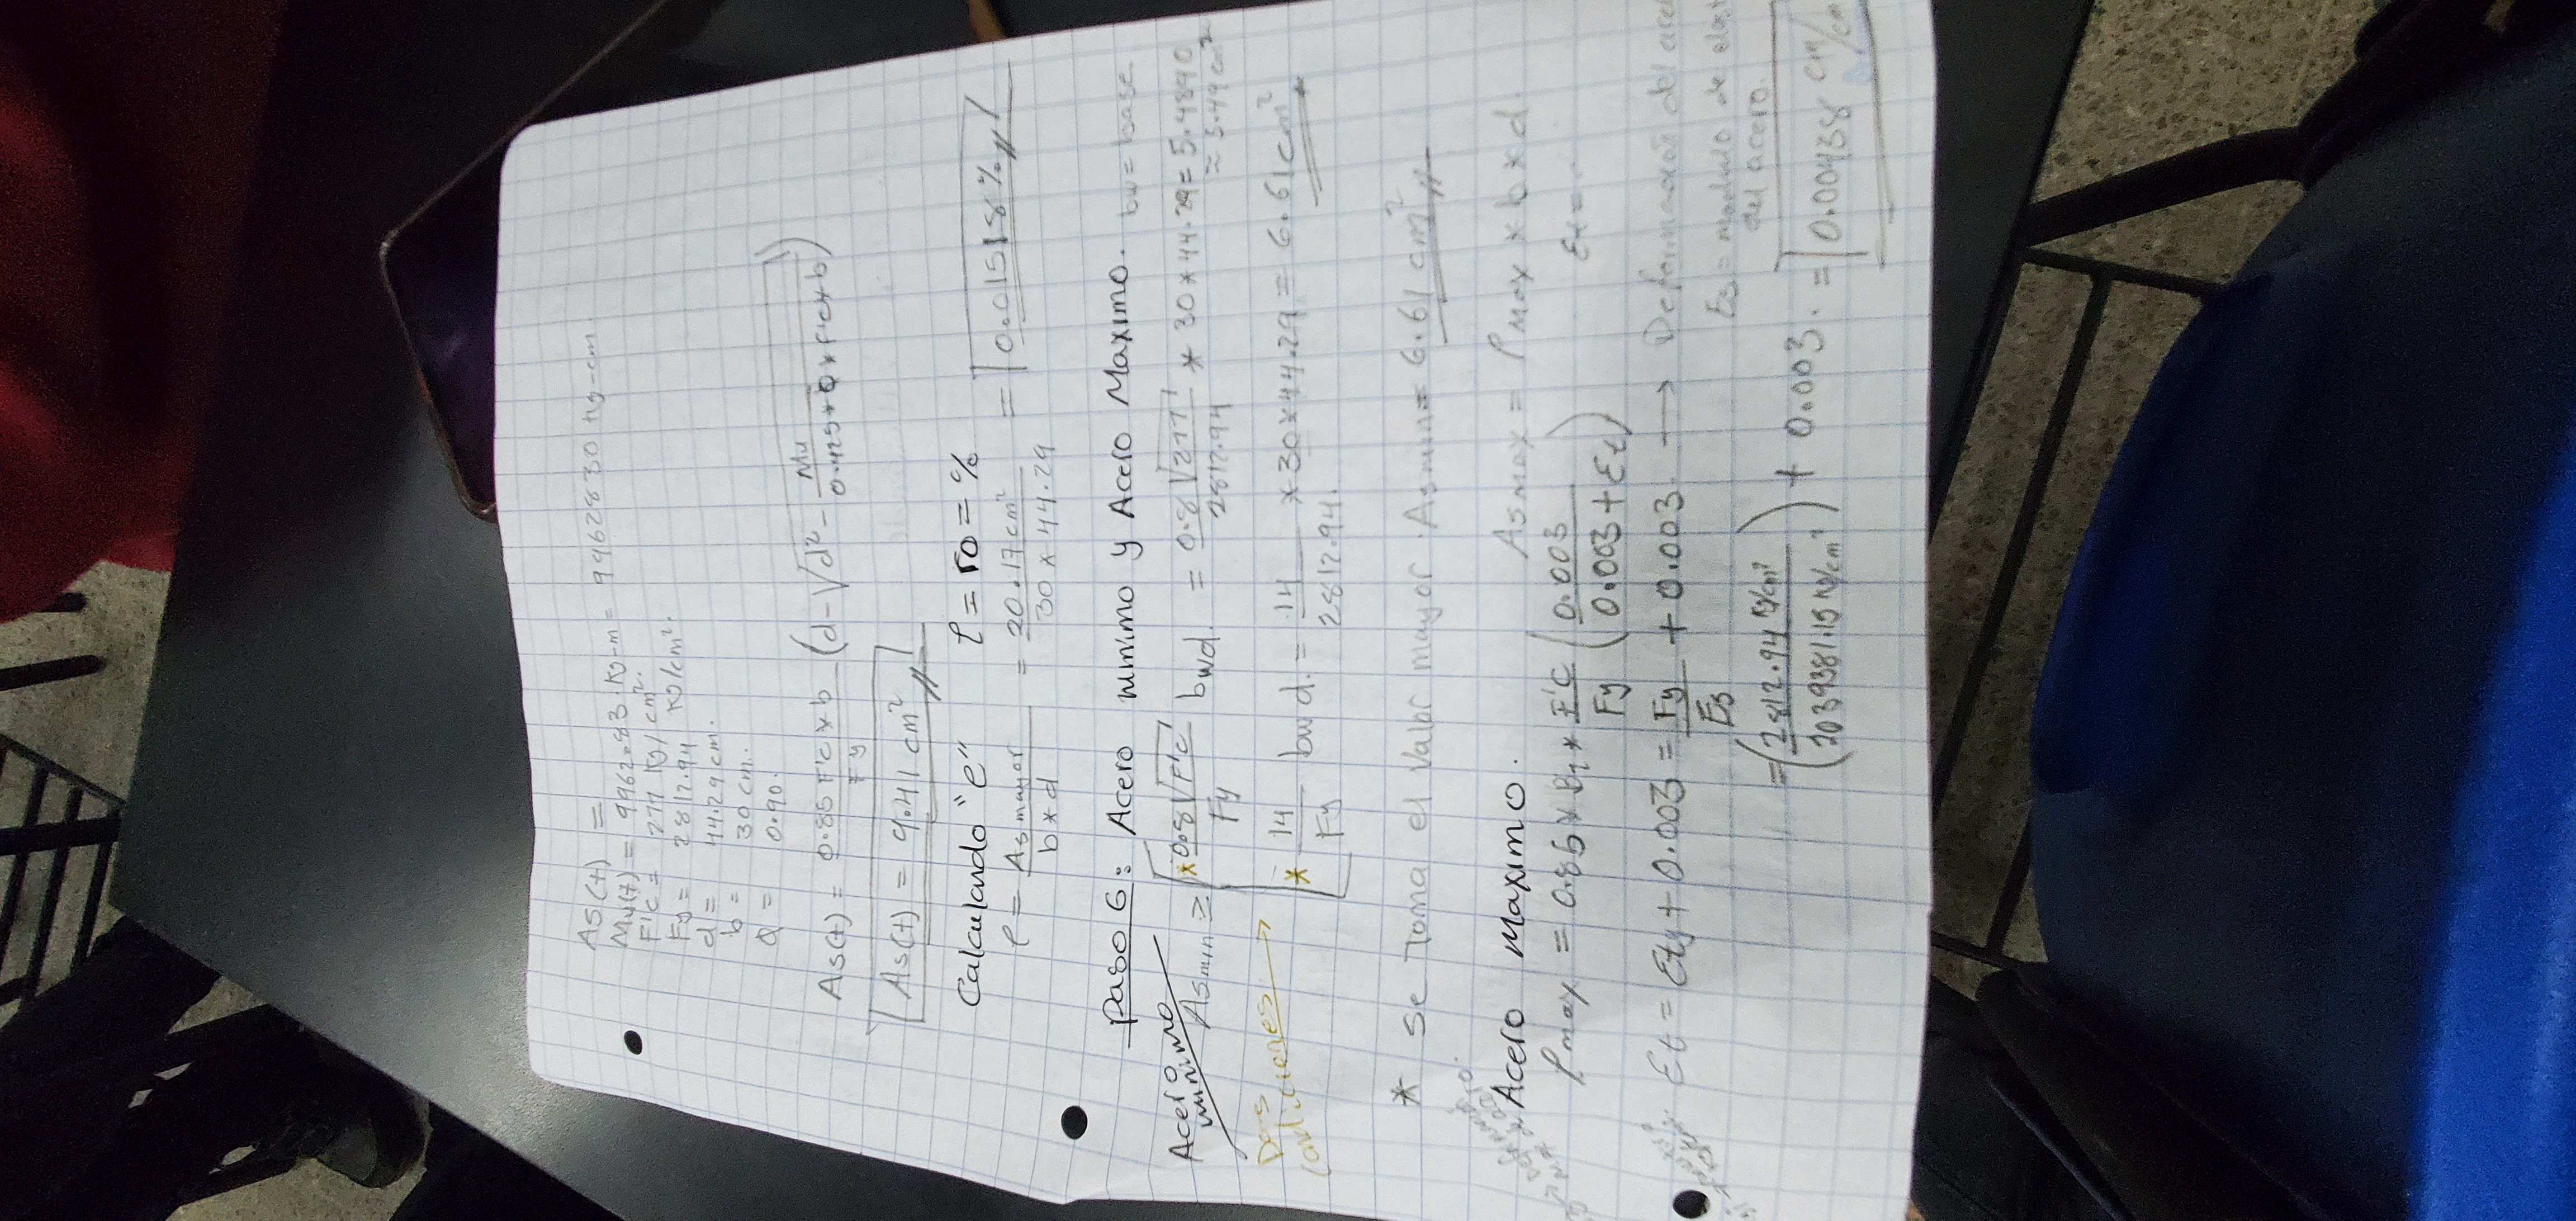 As(t) =
Mu(t) = 9962.83 Kg-m = 9962830 Kg-cm.
F'c = 277 Kg/cm².
Fy = 2812.94 Kg/cm².
d = 44.29 cm.
b = 30 cm.
Q = 0.90.
As(t) = 0.85 F'c * b / Fy (d - √(d² - Mu / 0.425 * Q * F'c * b))
As(t) = 9.41 cm²
Calculando "e" ℓ = ro = %
ℓ = As mayor / b * d = 20.17 cm² / 30 * 44.29 = 0.01518 %
Paso 6: Acero minimo y Acero Maximo. bw = base
Acero minimo
Asmin ≥ * 0.8 √F'c / Fy bwd. = 0.8 √277 / 2812.94 * 30 * 44.29 = 5.4890
≈ 5.49 cm²
Dos condiciones →
* 14 / Fy bw d. = 14 / 2812.94. * 30 * 44.29 = 6.61 cm²
* Se toma el valor mayor. Asmin = 6.61 cm²
Acero maximo. Asmax = ℓmax * b * d.
→ Deformación max de acero.
ℓmax = 0.85 * B1 * F'c / Fy (0.003 / 0.003 + Et) Et =
Et = Ety + 0.003 = Fy / Es + 0.003. → Deformación del
Es modulo de
del acero.
= (2812.94 Kg/cm² / 2039381.15 Kg/cm²) + 0.003. = 0.00438 cm/cm